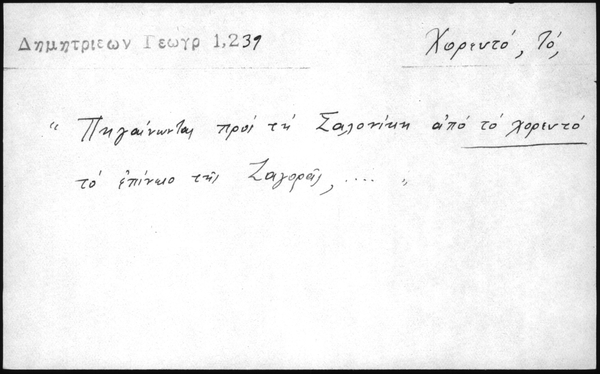 Δημητριεων Γεωγρ 1,239
Χορευτό, Τό,
“ Πηγαίνωντας πρός τή Σαλονίκη ἀπό τό χορευτό
τό ἐπίνειο τῆς Ζαγορᾶς, .... „